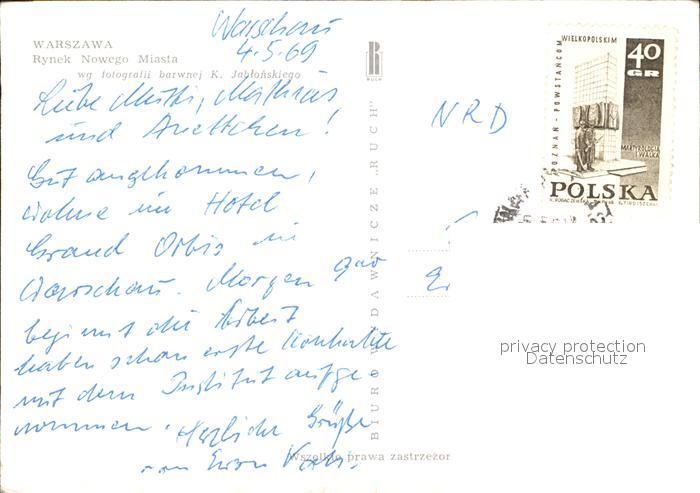 Warschau
4.5.69
WARSZAWA
Rynek Nowego Miasta
wg fotografii barwnej K. Jabłońskiego
Liebe Mutti, Mathias
und Anettchen!
Gut angekommen,
wohne im Hotel
Grand Orbis in
Warschau. Morgen
beginnt die Arbeit
haben schon erste Kontakte
mit dem Institut aufge-
nommen. Herzliche Grüße
von Euren
Wszelkie prawa zastrzeżon
RUCH
BIURO WYDAWNICZE „RUCH"
NRD
POZNAŃ - POWSTAŃCOM WIELKOPOLSKIM
40
GR
MARTYROLOGIA
I WALKA
POLSKA
privacy protection
Datenschutz